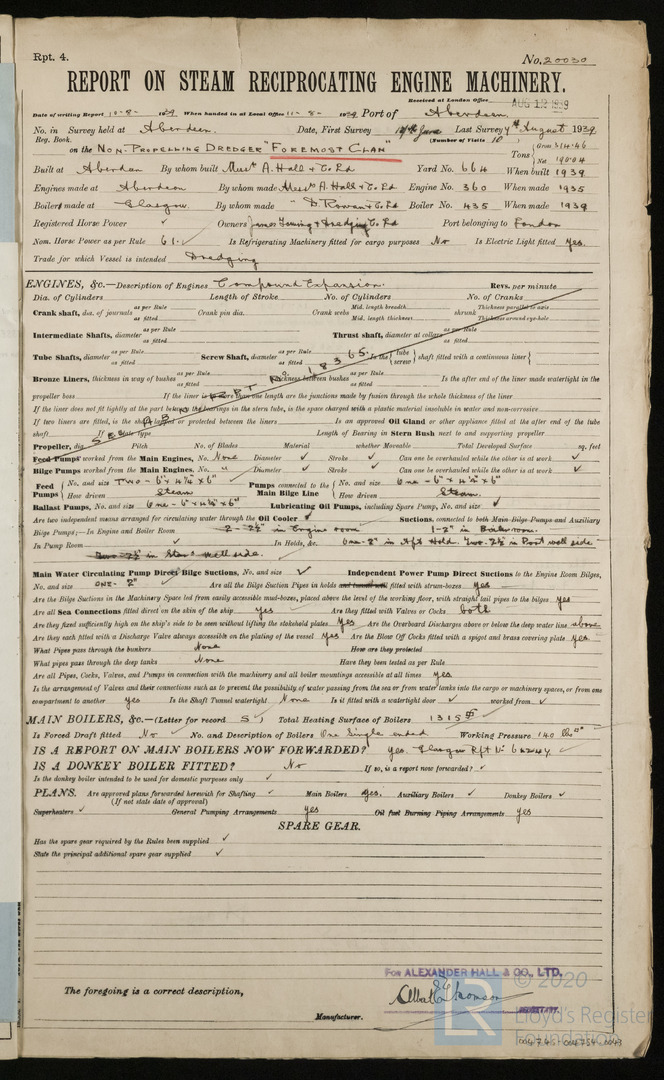 Rpt. 4.
No. 20030
REPORT ON STEAM RECIPROCATING ENGINE MACHINERY.
Received at London Office AUG 12 1939
Date of writing Report 10-8- 1939 When handed in at Local Office 11-8- 1939 Port of Aberdeen.
No. in Survey held at Aberdeen. Date, First Survey June Last Survey 7th August 1939
Reg. Book. (Number of Visits 10)
on the NON-PROPELLING DREDGER "FOREMOST CLAN" Tons Gross 314.46 Net 190.04
Built at Aberdeen By whom built Messrs A. Hall & Co Ld Yard No. 664 When built 1939
Engines made at Aberdeen By whom made Messrs A. Hall & Co Ld Engine No. 360 When made 1935
Boilers made at Glasgow. By whom made D. Rowan & Co Ld Boiler No. 435 When made 1939
Registered Horse Power Owners James Dredging Co Ld Port belonging to London
Nom. Horse Power as per Rule 61. Is Refrigerating Machinery fitted for cargo purposes No Is Electric Light fitted Yes.
Trade for which Vessel is intended Dredging
ENGINES, &c.—Description of Engines Compound Expansion. Revs. per minute
Dia. of Cylinders Length of Stroke No. of Cylinders No. of Cranks
Crank shaft, dia. of journals as per Rule as fitted Crank pin dia. Crank webs Mid. length breadth Mid. length thickness shrunk Thickness parallel to axis Thickness around eye-hole
Intermediate Shafts, diameter as per Rule as fitted Thrust shaft, diameter at collars as per Rule as fitted
Tube Shafts, diameter as per Rule as fitted Screw Shaft, diameter as per Rule as fitted Is the { tube screw } shaft fitted with a continuous liner {
Bronze Liners, thickness in way of bushes as per Rule as fitted Thickness between bushes as per Rule as fitted Is the after end of the liner made watertight in the
propeller boss If the liner is more than one length are the junctions made by fusion through the whole thickness of the liner
If the liner does not fit tightly at the part between the bearings in the stern tube, is the space charged with a plastic material insoluble in water and non-corrosive
If two liners are fitted, is the shaft lapped or protected between the liners Is an approved Oil Gland or other appliance fitted at the after end of the tube
shaft If so, state type Length of Bearing in Stern Bush next to and supporting propeller
SEE ABN RPT No. 18365.
Propeller, dia. Pitch No. of Blades Material whether Moveable Total Developed Surface sq. feet
Feed Pumps worked from the Main Engines, No. None Diameter Stroke Can one be overhauled while the other is at work
Bilge Pumps worked from the Main Engines, No. " Diameter Stroke Can one be overhauled while the other is at work
Feed Pumps { No. and size TWO - 6" x 4¼" x 6" How driven Steam Pumps connected to the Main Bilge Line { No. and size One - 6" x 4¼" x 6" How driven Steam.
Ballast Pumps, No. and size One - 6" x 4¼" x 6" Lubricating Oil Pumps, including Spare Pump, No. and size
Are two independent means arranged for circulating water through the Oil Cooler Suctions, connected to both Main Bilge Pumps and Auxiliary
Bilge Pumps;—In Engine and Boiler Room 2 - 2½" in Engine room 1-2" in Boiler room.
In Pump Room In Holds, &c. One-2" in Aft Hold. Two-2½ in Port well side
Two-2½ in Starb well side.
Main Water Circulating Pump Direct Bilge Suctions, No. and size Independent Power Pump Direct Suctions to the Engine Room Bilges,
No. and size ONE - 2" Are all the Bilge Suction Pipes in holds and tunnel well fitted with strum-boxes yes
Are the Bilge Suctions in the Machinery Space led from easily accessible mud-boxes, placed above the level of the working floor, with straight tail pipes to the bilges yes
Are all Sea Connections fitted direct on the skin of the ship yes Are they fitted with Valves or Cocks both
Are they fixed sufficiently high on the ship's side to be seen without lifting the stokehold plates yes Are the Overboard Discharges above or below the deep water line above
Are they each fitted with a Discharge Valve always accessible on the plating of the vessel yes Are the Blow Off Cocks fitted with a spigot and brass covering plate yes
What Pipes pass through the bunkers None How are they protected
What pipes pass through the deep tanks None Have they been tested as per Rule
Are all Pipes, Cocks, Valves, and Pumps in connection with the machinery and all boiler mountings accessible at all times yes
Is the arrangement of Valves and their connections such as to prevent the possibility of water passing from the sea or from water tanks into the cargo or machinery spaces, or from one
compartment to another yes Is the Shaft Tunnel watertight None Is it fitted with a watertight door worked from
MAIN BOILERS, &c.—(Letter for record S.) Total Heating Surface of Boilers 1315
Is Forced Draft fitted No No. and Description of Boilers One Single ended Working Pressure 140 lbs
IS A REPORT ON MAIN BOILERS NOW FORWARDED? Yes. Glasgow Rpt No
IS A DONKEY BOILER FITTED? No If so, is a report now forwarded?
Is the donkey boiler intended to be used for domestic purposes only
PLANS. Are approved plans forwarded herewith for Shafting Main Boilers yes. Auxiliary Boilers Donkey Boilers
(If not state date of approval)
Superheaters General Pumping Arrangements yes Oil fuel Burning Piping Arrangements yes
SPARE GEAR.
Has the spare gear required by the Rules been supplied
State the principal additional spare gear supplied
FOR ALEXANDER HALL & CO., LTD.
The foregoing is a correct description,
SECRETARY.
Manufacturer.
© 2020
LR
Lloyd's Register
Foundation
004745-004754-0043